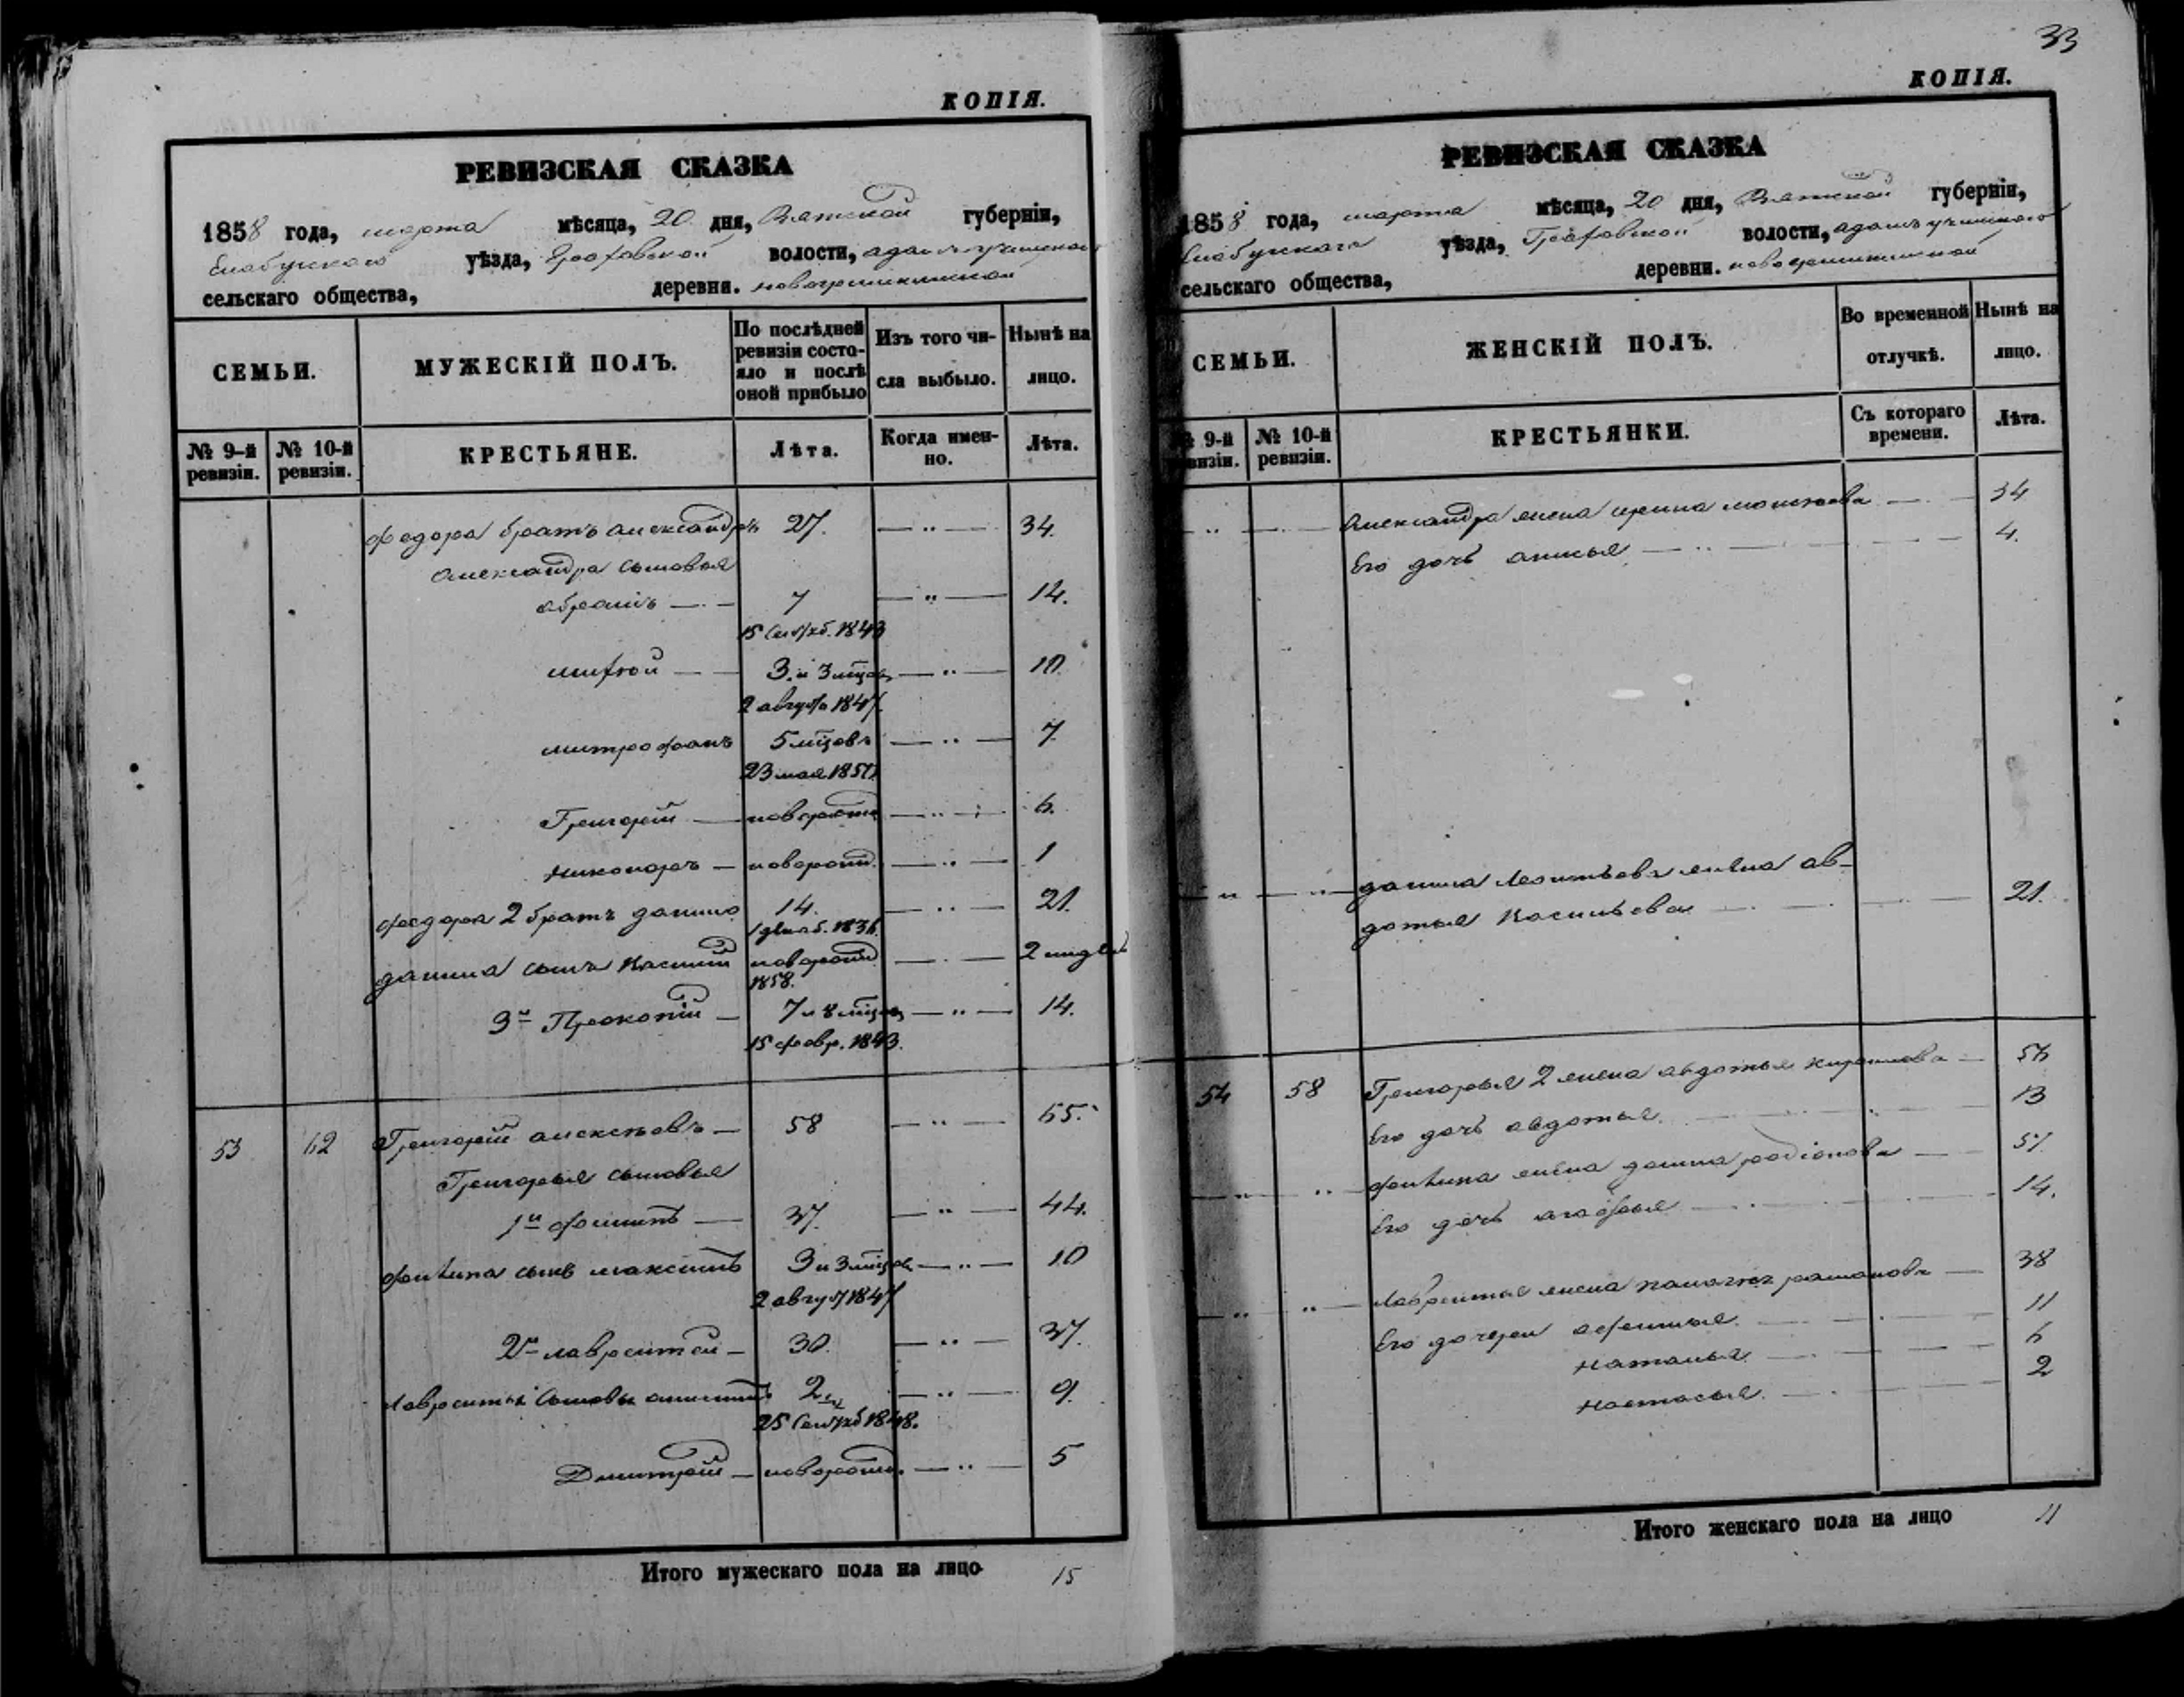 33
КОПІЯ.
РЕВИЗСКАЯ СКАЗКА
1858 года, марта мѣсяца, 20 дня, Вятской губерніи,
Елабужскаго уѣзда, Граховской волости,
сельскаго общества, деревни.
СЕМЬИ.
МУЖЕСКІЙ ПОЛЪ.
По послѣдней ревизіи состо-
яло и послѣ оной прибыло
Изъ того чи-
сла выбыло.
Нынѣ на
лицо.
№ 9-й ревизіи.
№ 10-й ревизіи.
КРЕСТЬЯНЕ.
Лѣта.
Когда имен-
но.
Лѣта.
Федора братъ александръ 27. — " — 34.
Александра сыновья
абрамъ — 7 — " — 14.
15 1843
3 и 3 мѣсяц — " — 10
2 августа 1847.
митрофанъ 5 мѣсяцовъ — " — 7
23 мая
Григорій — новорожд — " — 6.
никифоръ — новорожд. — " — 1
Федора 2 братъ данило 14. — " — 21.
данила сынъ Василій новорожд — " — 2 недел
1858.
3й Прокопій — 7 и 8 мѣсяц — " — 14.
15 февр. 1843.
53 62 Григорій алексѣевъ — 58 — " — 65.
Григорья сыновья
1й — 37. — " — 44.
сынъ максимъ 3 и 3 мѣсяц — " — 10
2 август 1847
2й лаврентей — 30. — " — 37.
Лаврентья сыновья 2 — " — 9.
25 1848.
Дмитрій — новорожд. — " — 5
Итого мужескаго пола на лицо 15
КОПІЯ.
РЕВИЗСКАЯ СКАЗКА
1858 года, марта мѣсяца, 20 дня, Вятской губерніи,
Елабужскаго уѣзда, Граховской волости,
сельскаго общества, деревни.
СЕМЬИ.
ЖЕНСКІЙ ПОЛЪ.
Во временной
отлучкѣ.
Нынѣ на
лицо.
№ 9-й ревизіи.
№ 10-й ревизіи.
КРЕСТЬЯНКИ.
Съ котораго
времени.
Лѣта.
Александра жена ирина — 34
Его дочь — " — 4.
данила Леонтьева жена ав-
дотья Васильева — 21.
54 58 Григорья 2 жена авдотья кирилова — 56
Его дочь авдотья. — 13
жена родіонова — 51
Его дочь — 14.
Лаврентья жена романова — 38
Его дочери — 11
наталья — 6
настасья. — 2
Итого женскаго пола на лицо 11